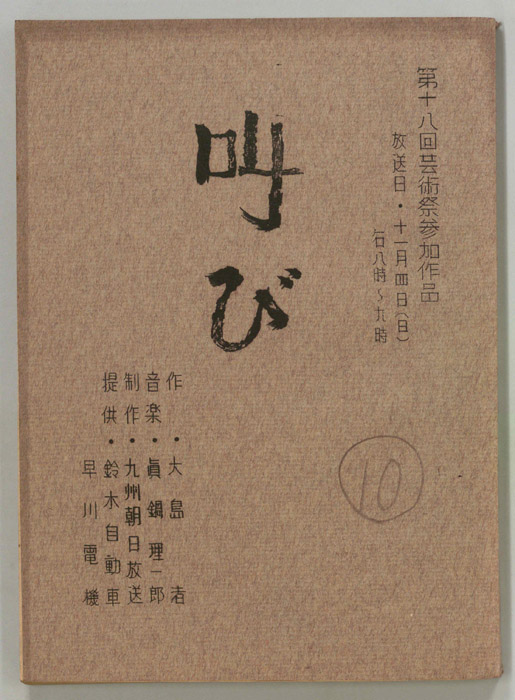 第十八回芸術祭参加作品
放送日・十一月四日(日)
后八時~九時
叫び
作・大島渚
音楽・眞鍋理一郎
制作・九州朝日放送
提供・鈴木自動車
早川電機
10